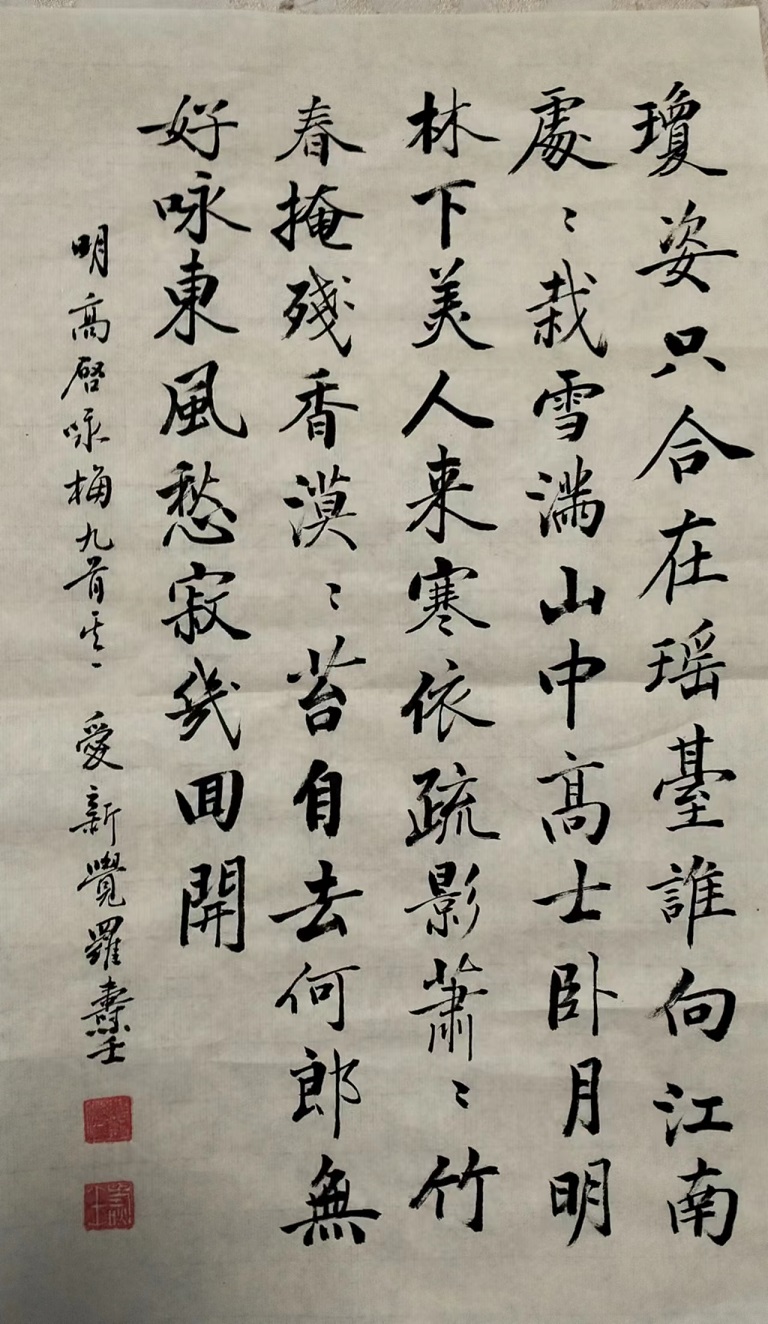 瓊姿只合在瑶臺誰向江南
處〻栽雪滿山中髙士卧月明
林下美人来寒依疏影蕭〻竹
春掩殘香漠〻苔自去何郎無
好咏東風愁寂幾回開
明髙啓咏梅九首其一 愛新覺羅燾